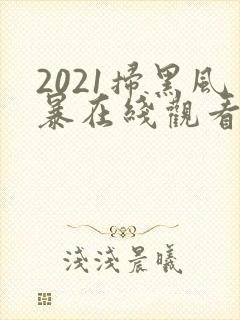 2021掃黑風
暴在綫觀看
淺淺晨曦